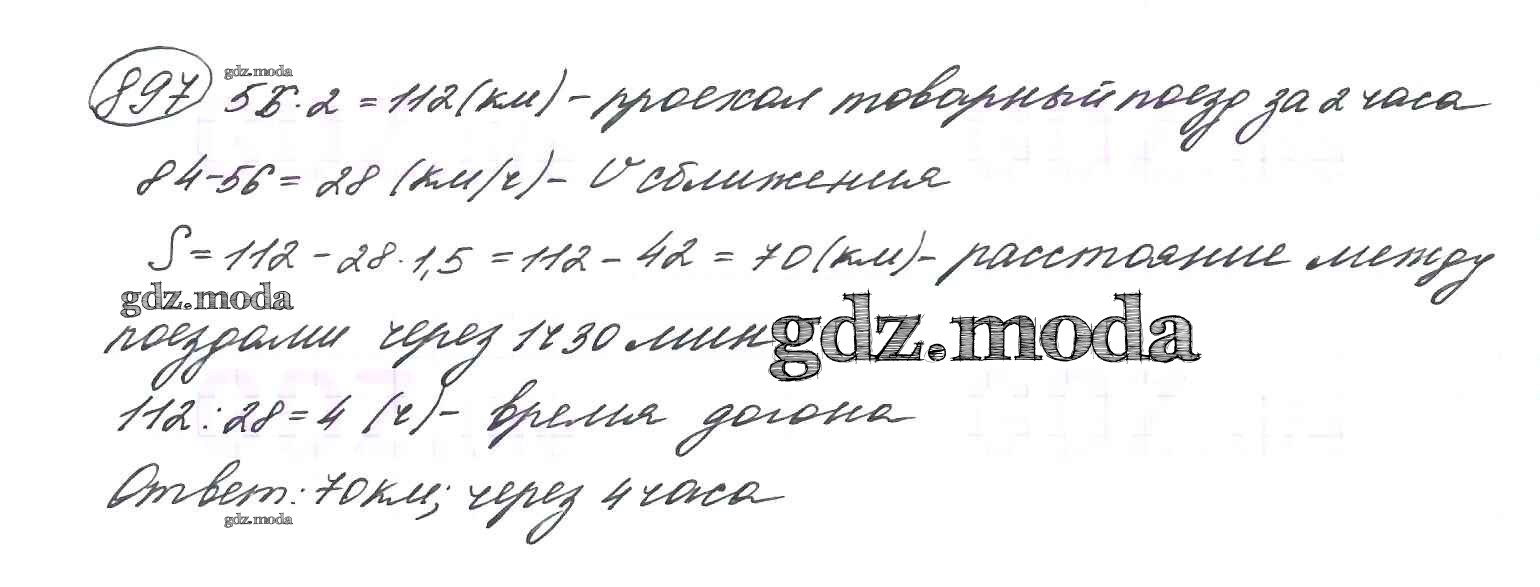 897 gdz.moda 56·2=112(км)-проехал товарный поезд за 2 часа
84-56=28(км/ч)-V сближения
S=112-28·1,5=112-42=70(км)-расстояние между
gdz.moda
поездами через 1ч30мин gdz.moda
112:28=4(ч)-время догона
Ответ:70км; через 4 часа
gdz.moda